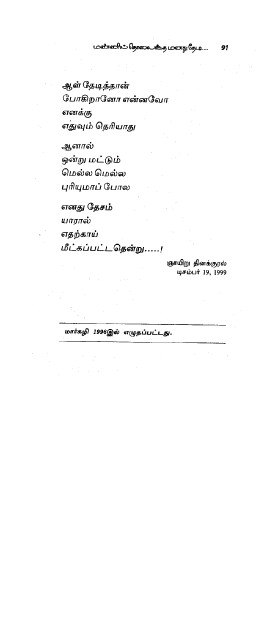 மண்ணில் தொலைந்த மனது தேடி... 91
ஆள் தேடித்தான்
போகிறானோ என்னவோ
எனக்கு
எதுவும் தெரியாது
ஆனால்
ஒன்று மட்டும்
மெல்ல மெல்ல
புரியுமாப் போல
எனது தேசம்
யாரால்
எதற்காய்
மீட்கப்பட்டதென்று.....!
ஞாயிறு தினக்குரல்
டிசம்பர் 19, 1999
மார்கழி 1996இல் எழுதப்பட்டது.